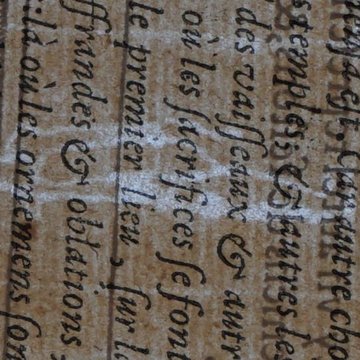 un autre cho
s temples & autres le
des vaiſſeaux & autr
où les ſacrifices ſe fon
le premier lieu, ſur l
ffrandes & oblations
ilà où les ornemens ſon